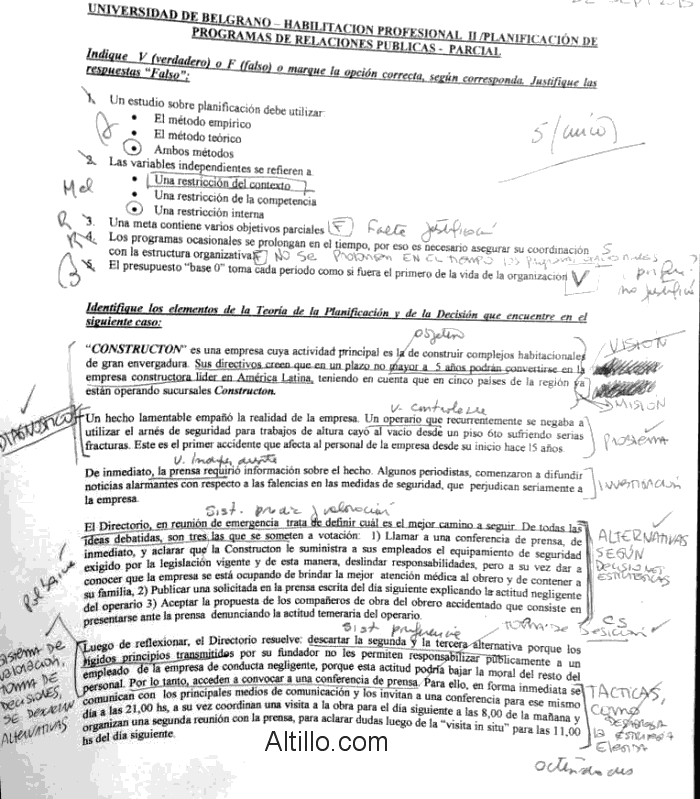 UNIVERSIDAD DE BELGRANO – HABILITACION PROFESIONAL II /PLANIFICACIÓN DE
PROGRAMAS DE RELACIONES PUBLICAS - PARCIAL
Indique V (verdadero) o F (falso) o marque la opción correcta, según corresponda. Justifique las
respuestas "Falso":
1. Un estudio sobre planificación debe utilizar:
• El método empírico
• El método teórico
• Ambos métodos
5 (cinco)
2. Las variables independientes se refieren a
• Una restricción del contexto
Mal
• Una restricción de la competencia
• Una restricción interna
R 3. Una meta contiene varios objetivos parciales F Falta justificar
R 4. Los programas ocasionales se prolongan en el tiempo, por eso es necesario asegurar su coordinación
con la estructura organizativa F NO SE PROLONGAN EN EL TIEMPO LOS
B 5. El presupuesto "base 0" toma cada periodo como si fuera el primero de la vida de la organización V
no justificó
Identifique los elementos de la Teoría de la Planificación y de la Decisión que encuentre en el
siguiente caso:
objetivo
VISIÓN
"CONSTRUCTON" es una empresa cuya actividad principal es la de construir complejos habitacionales
de gran envergadura. Sus directivos creen que en un plazo no mayor a 5 años podrán convertirse en la
empresa constructora líder en América Latina, teniendo en cuenta que en cinco países de la región ya
están operando sucursales Constructon.
MISIÓN
DIAGNOSTICO
V. Controlable
Un hecho lamentable empañó la realidad de la empresa. Un operario que recurrentemente se negaba a
utilizar el arnés de seguridad para trabajos de altura cayó al vacío desde un piso 6to sufriendo serias
fracturas. Este es el primer accidente que afecta al personal de la empresa desde su inicio hace 15 años.
PROBLEMA
De inmediato, la prensa requirió información sobre el hecho. Algunos periodistas, comenzaron a difundir
noticias alarmantes con respecto a las falencias en las medidas de seguridad, que perjudican seriamente a
la empresa.
INVESTIGACIÓN
Sist. predic y valoración
El Directorio, en reunión de emergencia trata de definir cuál es el mejor camino a seguir. De todas las
ideas debatidas, son tres las que se someten a votación: 1) Llamar a una conferencia de prensa, de
inmediato, y aclarar que la Constructon le suministra a sus empleados el equipamiento de seguridad
exigido por la legislación vigente y de esta manera, deslindar responsabilidades, pero a su vez dar a
conocer que la empresa se está ocupando de brindar la mejor atención médica al obrero y de contener a
su familia, 2) Publicar una solicitada en la prensa escrita del día siguiente explicando la actitud negligente
del operario 3) Aceptar la propuesta de los compañeros de obra del obrero accidentado que consiste en
presentarse ante la prensa denunciando la actitud temeraria del operario.
ALTERNATIVAS
SEGÚN
DECISIONES
ESTRATEGICAS
Sist preferencia
TOMA DE DECISION
Luego de reflexionar, el Directorio resuelve: descartar la segunda y la tercera alternativa porque los
rígidos principios transmitidos por su fundador no les permiten responsabilizar públicamente a un
empleado de la empresa de conducta negligente, porque esta actitud podría bajar la moral del resto del
personal. Por lo tanto, acceden a convocar a una conferencia de prensa. Para ello, en forma inmediata se
comunican con los principales medios de comunicación y los invitan a una conferencia para ese mismo
día a las 21,00 hs, a su vez coordinan una visita a la obra para el día siguiente a las 8,00 de la mañana y
organizan una segunda reunión con la prensa, para aclarar dudas luego de la "visita in situ" para las 11,00
hs del día siguiente.
SISTEMA DE
VALORACION,
TOMA DE
DECISIONES,
SE DESECHAN
ALTERNATIVAS
TACTICAS,
COMO
DESARROLLA
LA ESTRATEGIA
ELEGIDA
actividades
Altillo.com